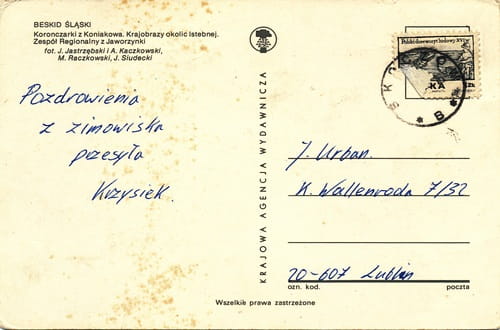 BESKID ŚLĄSKI
Koronczarki z Koniakowa. Krajobrazy okolic Istebnej.
Zespół Regionalny z Jaworzynki
fot. J. Jastrzębski i A. Kaczkowski,
M. Raczkowski, J. Siudecki
Pozdrowienia
z zimowiska
przesyła
Krzysiek.
KRAJOWA AGENCJA WYDAWNICZA
Polski drzeworyt ludowy XVI w.
KA
B
J. Urban.
K. Wallenroda 7/32
20-607 Lublin
ozn. kod. poczta
Wszelkie prawa zastrzeżone